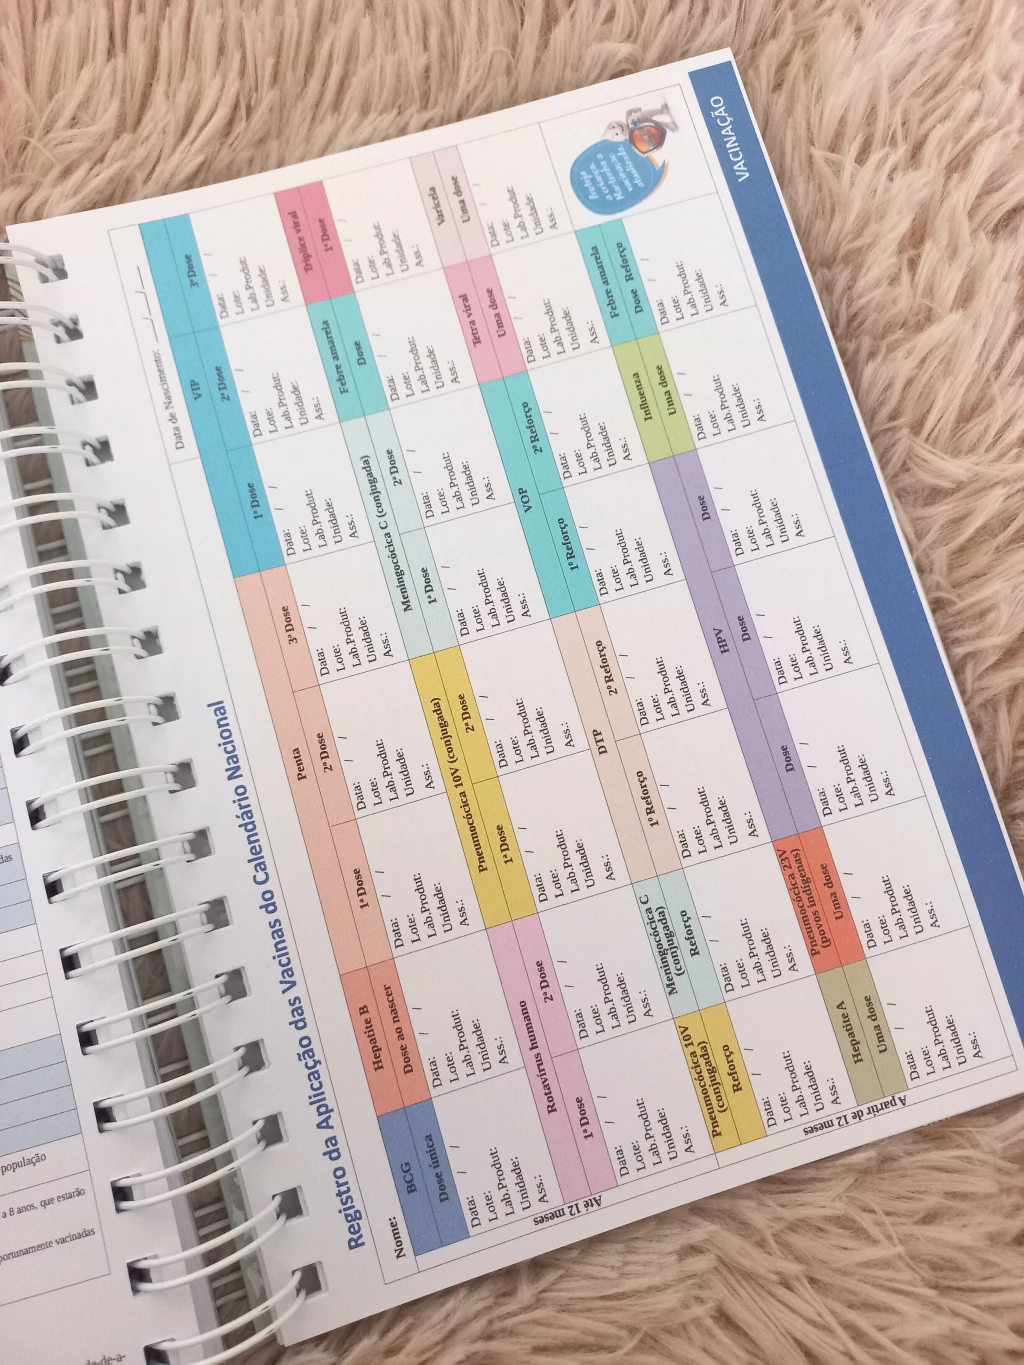 das
população
a 8 anos, que estarão
portunamente vacinadas
Registro da Aplicação das Vacinas do Calendário Nacional
Nome: Data de Nascimento: / /
Até 12 meses
BCG Hepatite B Penta VIP
Dose única Dose ao nascer 1ª Dose 2ª Dose 3ª Dose 1ª Dose 2ª Dose 3ª Dose
Data: / / Data: / / Data: / / Data: / / Data: / / Data: / / Data: / / Data: / /
Lote: Lote: Lote: Lote: Lote: Lote: Lote: Lote:
Lab.Produt: Lab.Produt: Lab.Produt: Lab.Produt: Lab.Produt: Lab.Produt: Lab.Produt: Lab.Produt:
Unidade: Unidade: Unidade: Unidade: Unidade: Unidade: Unidade: Unidade:
Ass.: Ass.: Ass.: Ass.: Ass.: Ass.: Ass.: Ass.:
Rotavírus humano Pneumocócica 10V (conjugada) Meningocócica C (conjugada) Febre amarela Tríplice viral
1ª Dose 2ª Dose 1ª Dose 2ª Dose 1ª Dose 2ª Dose Dose 1ª Dose
Data: / / Data: / / Data: / / Data: / / Data: / / Data: / / Data: / / Data: / /
Lote: Lote: Lote: Lote: Lote: Lote: Lote: Lote:
Lab.Produt: Lab.Produt: Lab.Produt: Lab.Produt: Lab.Produt: Lab.Produt: Lab.Produt: Lab.Produt:
Unidade: Unidade: Unidade: Unidade: Unidade: Unidade: Unidade: Unidade:
Ass.: Ass.: Ass.: Ass.: Ass.: Ass.: Ass.: Ass.:
A partir de 12 meses
Pneumocócica 10V Meningocócica C DTP VOP Tetra viral Varicela
(conjugada) (conjugada)
Reforço Reforço 1º Reforço 2º Reforço 1º Reforço 2º Reforço Uma dose Uma dose
Data: / / Data: / / Data: / / Data: / / Data: / / Data: / / Data: / / Data: / /
Lote: Lote: Lote: Lote: Lote: Lote: Lote: Lote:
Lab.Produt: Lab.Produt: Lab.Produt: Lab.Produt: Lab.Produt: Lab.Produt: Lab.Produt: Lab.Produt:
Unidade: Unidade: Unidade: Unidade: Unidade: Unidade: Unidade: Unidade:
Ass.: Ass.: Ass.: Ass.: Ass.: Ass.: Ass.: Ass.:
Hepatite A Pneumocócica 23V HPV Influenza Febre amarela
(povos indígenas)
Uma dose Uma dose Dose Dose Dose Uma dose Dose Reforço
Data: / / Data: / / Data: / / Data: / / Data: / / Data: / / Data: / /
Lote: Lote: Lote: Lote: Lote: Lote: Lote:
Lab.Produt: Lab.Produt: Lab.Produt: Lab.Produt: Lab.Produt: Lab.Produt: Lab.Produt:
Unidade: Unidade: Unidade: Unidade: Unidade: Unidade: Unidade:
Ass.: Ass.: Ass.: Ass.: Ass.: Ass.: Ass.:
Proteja
a criança.
Mantenha a
vacinação
atualizada.
VACINAÇÃO